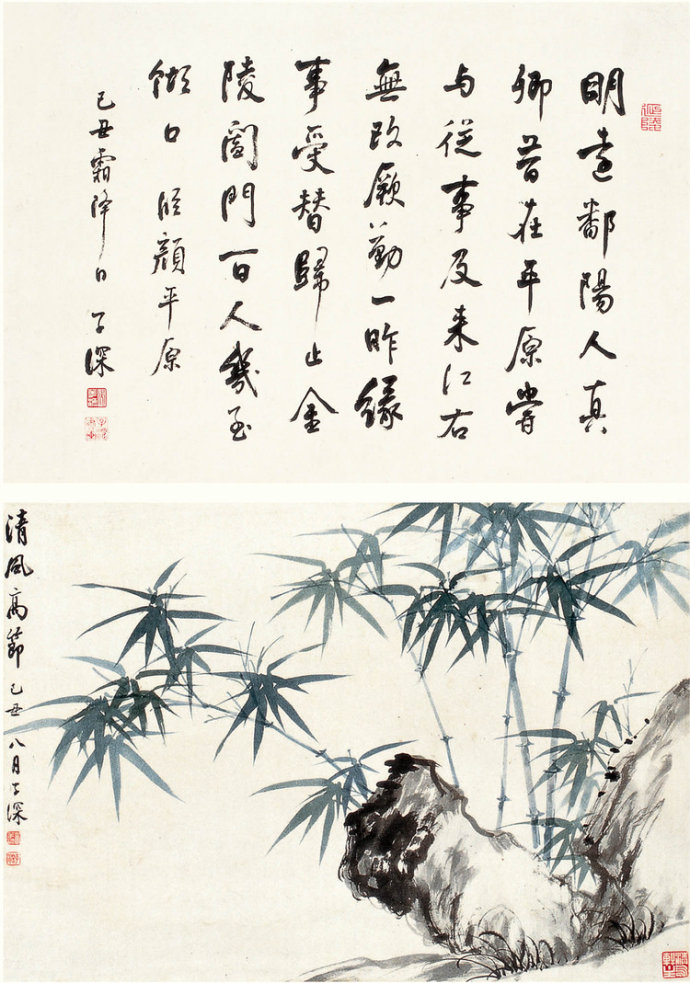 明遠鄱陽人真
卿昔在平原嘗
与從事及来江右
無改厥勤一昨緣
事受替歸止金
陵闔門百人幾至
餬口 臨顏平原
己丑霜降日 子深
清風高節 己丑 八月子深